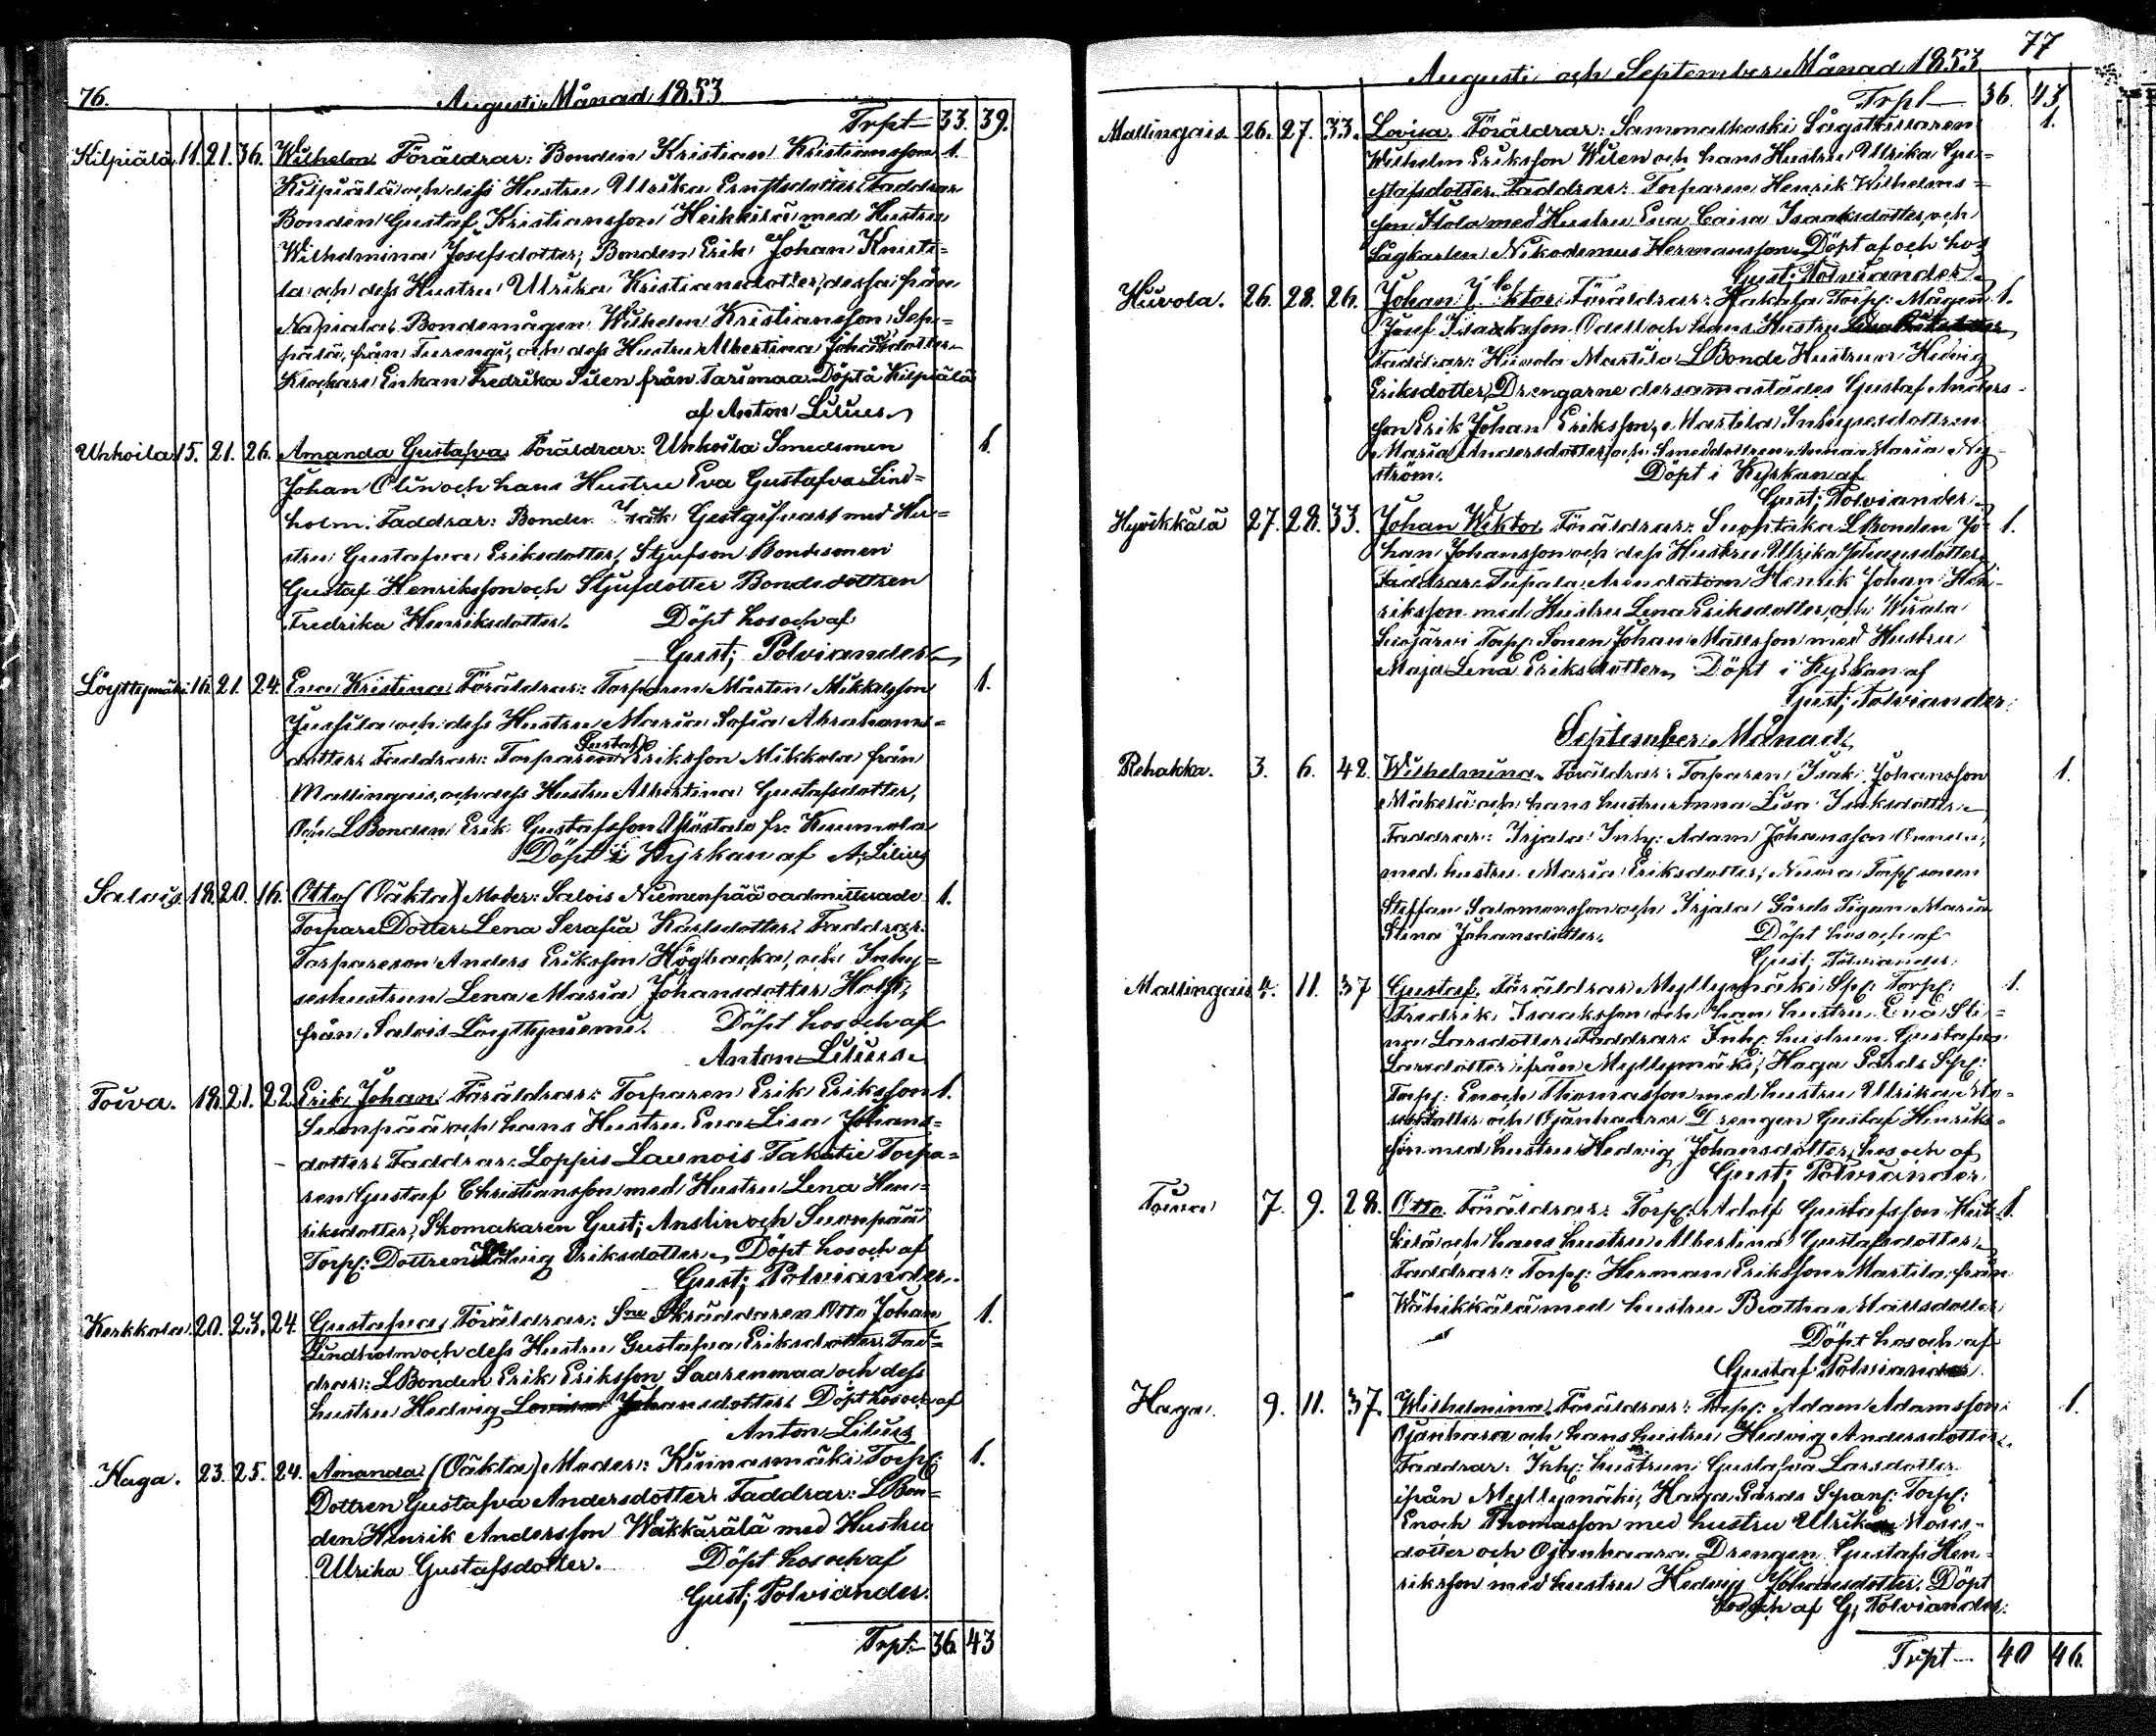 76.
Augusti Månad 1853
Trpt— 33. 39.
Kilpiälä 11. 21. 36. Wilhelm Föräldrar: Bonden Kristian Kristiansson 1.
Kilpiälä och dess Hustru Ulrika Ernstsdotter Faddrar
Bonden Gustaf Kristiansson Heikkilä med Hustru
Wilhelmina Josefsdotter; Bonden Erik Johan
la och dess Hustru Ulrika Kristiansdotter, dessa från
Napiala, Bondemågen Wilhelm Kristiansson Sep=
pälä, från Turengi, och dess Hustru Albertina Johansdotter
Klockars Enkan Fredrika Silen från Tarimaa Döpt å Kilpiälä
af Anton Lilius
Uhkoila 15. 21. 26. Amanda Gustafva Föräldrar: Uhkoila Smedsonen 1.
Johan Olin och hans Hustru Eva Gustafva Lind=
holm. Faddrar: Bonden Isak Gestgifvars med Hu=
stru Gustafva Eriksdotter, Styfson Bondesonen
Gustaf Henriksson och Stjufdotter Bondedottren
Fredrika Henriksdotter. Döpt hos och af
Gust; Polviander
Löyttymäki 16. 21. 24. Eva Kristina Föräldrar: Torparen Mårten Mikkelsson 1.
Jussila och dess Hustru Maria Sofia Abrahams=
dotter Faddrar: Torparen Gustaf Eriksson Mikkola från
Mallingais, och dess Hustru Albertina Gustafsdotter,
Och LBonden Erik Gustafsson Ylöstalo fr. Kuumola
Döpt i Kyrkan af A; Lilius
Salois 18. 20. 16. Otto (Oäkta) Moder: Salois Niemenpää oadmitterade 1.
Torpare Dotter Lena Serafia Karlsdotter Faddrar:
Torparesonen Anders Eriksson Högbacka, och Inhy=
seshustrun Lena Maria Johansdotter
från Salois Löyttyniemi. Döpt hos och af
Anton Lilius
Toiva. 18. 21. 22. Erik Johan Föräldrar: Torparen Erik Eriksson 1.
Suonpää och hans Hustru Eva Lisa Johans=
dotter Faddrar: Loppis Launois Takatie Torpa=
ren Gustaf Christiansson med Hustru Lena Hen=
riksdotter; Skomakaren Gust; Anslin och Suonpää
Torp: Dottren Hedvig Eriksdotter. Döpt hos och af
Gust; Polviander.
Kerkkola 20. 23. 24. Gustafva Föräldrar: Sne Skräddaren Otto Johan 1.
Lindholm och dess Hustru Gustafva Eriksdotter. Fad=
drar: LBonden Erik Eriksson Saarenmaa och dess
hustru Hedvig Johansdotter Döpt hos och af
Anton Lilius
Haga. 23. 25. 24. Amanda (Oäkta) Moder: Kiinanmäki Torp: 1.
Dottren Gustafva Andersdotter Faddrar: LBon=
den Henrik Andersson Wäkkärälä med Hustru
Ulrika Gustafsdotter. Döpt hos och af
Gust; Polviander.
Trpt— 36. 43
77
Augusti och September Månad 1853
Trpt— 36. 43
Mallingais 26. 27. 33. Lovisa. Föräldrar: Sammalkoski Sågställaren 1.
Wilhelm Eriksson Wilen och hans Hustru Ulrika Gu=
stafsdotter Faddrar: Torparen Henrik Wilhelms=
son med Hustru Eva Caisa Isaaksdotter och
Sågkarlen Nikodemus Hermansson Döpt af och hos
Gust; Polviander
Hiivola. 26. 28. 26. Johan Viktor Föräldrar: Hakala Torp: Mågen 1.
Josef Isaaksson Odell och hans Hustru
Faddrar: Hiivola Martila LBonde Hustrun Hedvig
Eriksdotter, Drengarne dersammastädes Gustaf Anders=
son Erik Johan Eriksson, Martila Inhysesdottren
Maria Andersdotter och Smeddottren Anna Maria Ny=
ström. Döpt i Kyrkan af
Gust; Polviander
Hyvikkälä 27. 28. 33. Johan Wiktor Föräldrar: LBonden Jo= 1.
han Johansson och dess Hustru Ulrika Johansdotter.
Faddrar: Arendatorn Henrik Johan Hen=
riksson med Hustru Lena Eriksdotter, och Wirala
Suojärvi Torp: Sonen Johan Mattsson med Hustru
Maja Lena Eriksdotter Döpt i Kyrkan af
Gust; Polviander
September Månad
Rehakka. 3. 6. 42. Wilhelmina. Föräldrar: Torparen Isak Johansson 1.
Mäkelä och hans hustru Anna Lisa Isaksdotter
Faddrar: Irjala Inh: Adam Johansson
med hustru Maria Eriksdotter, Torp: sonen
Steffan Salomonsson och Irjala Gårds Pigan Maria
Stina Johansdotter. Döpt hos och af
Gust; Polviander
Mallingais 11. 37 Gustaf. Föräldrar Myllymäki Torp: 1.
Fredrik Isaaksson och hans hustru Eva Sti=
na Larsdotter Faddrar: Inh: hustrun Gustafva
Larsdotter ifrån Myllymäki, Haga Gårds
Torp: Enoch Thomasson med hustru Ulrika Mo=
sesdotter och Ojanhaara Drengen Gustaf Henriks=
son med hustru Hedvig Johansdotter, hos och af
Gust; Polviander
Toiva 7. 9. 28. Otto. Föräldrar: Torp: Adolf Gustafsson Heik= 1.
kilä och hans hustru Albertina Gustafsdotter.
Faddrar: Torp: Herman Eriksson Martila från
Wähikkälä med hustru Beatha Mattsdotter
Döpt hos och af
Gustaf Polviander
Haga. 9. 11. 37. Wilhelmina. Föräldrar: Torp: Adam Adamsson 1.
Ojanhaara och hans hustru Hedvig Andersdotter.
Faddrar: Inh: hustrun Gustafva Larsdotter
ifrån Myllymäki, Haga Gårds Torp:
Enoch Thomasson med hustru Ulrika Moses=
dotter och Ojanhaara Drengen Gustaf Hen=
riksson med hustru Hedvig Johansdotter. Döpt
hos och af G; Polviander.
Trpt— 40 46.